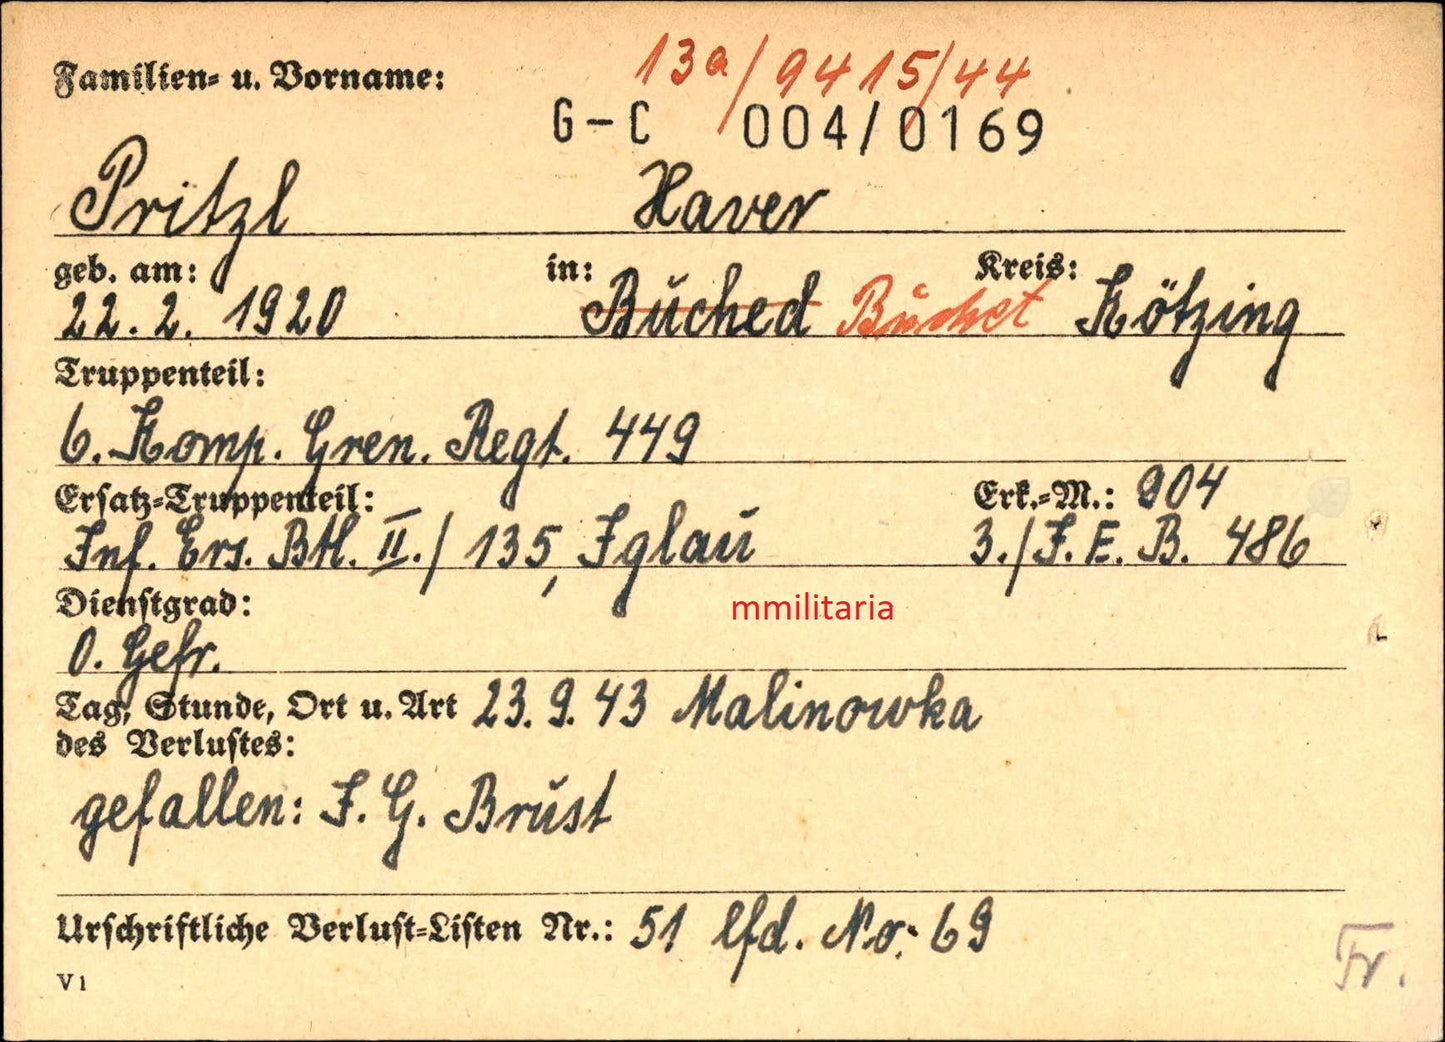 Familien- u. Vorname:
13a/9415/44
G-C 004/0169
Pritzl Xaver
geb. am: in: Kreis:
22. 2. 1920 Buched Buchet Kötzing
Truppenteil:
6. Komp. Gren. Regt. 449
Ersatz-Truppenteil: Erk.-M.: 904
Inf. Ers. Btl. II./135, Iglau 3./I. E. B. 486
Dienstgrad:
O. Gefr.
mmilitaria
Tag, Stunde, Ort u. Art 23. 9. 43 Malinowka
des Verlustes:
gefallen: I. G. Brust
Urschriftliche Verlust-Listen Nr.: 51 lfd. No. 69
V 1
Fr.